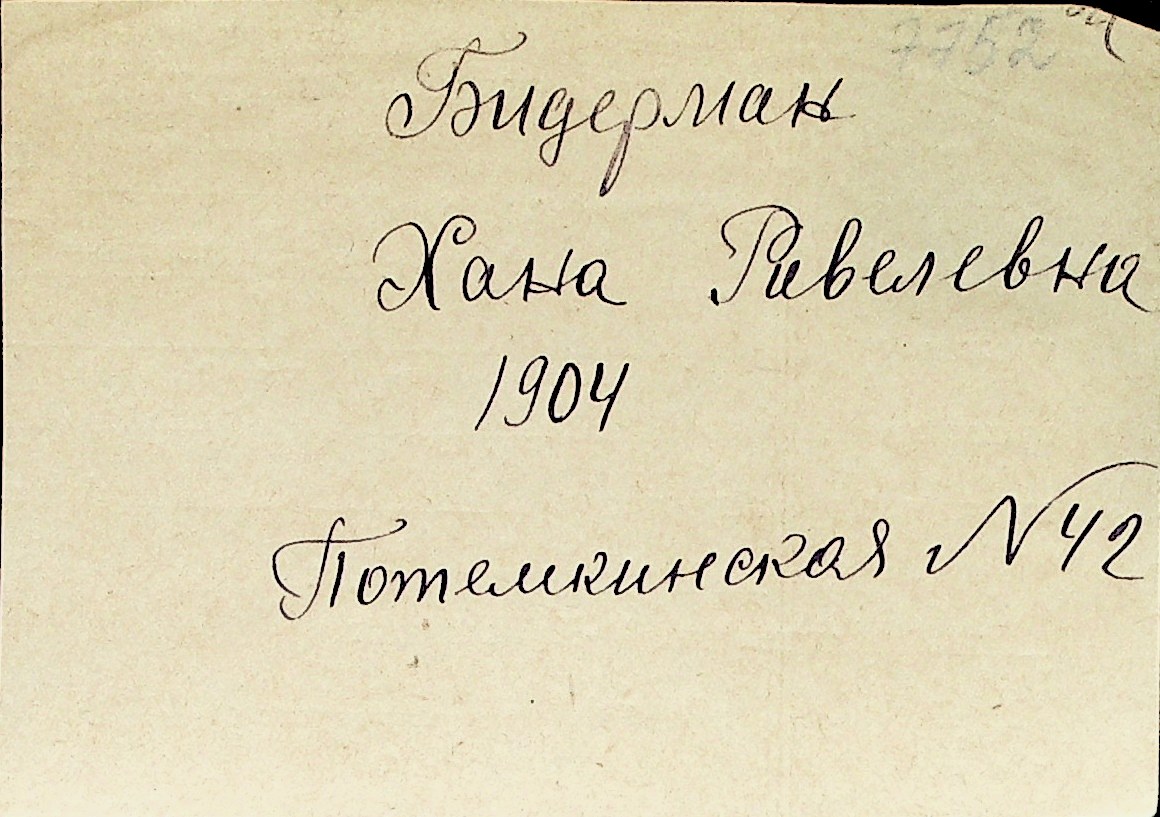 7752
Бидерман
Хана Ривелевна
1904
Потемкинская N 42